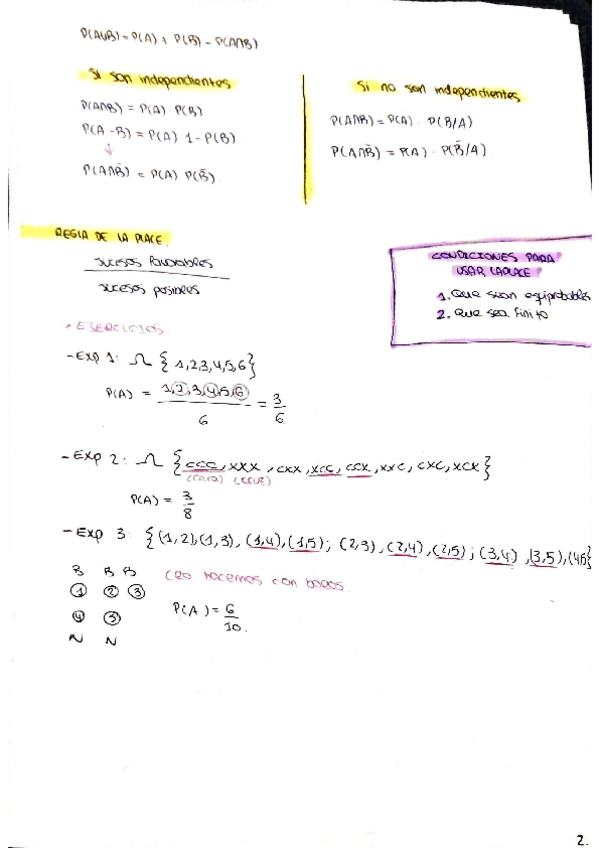 P(AUB) = P(A) + P(B) - P(A∩B)
Si son independientes
P(A∩B) = P(A) · P(B)
P(A - B) = P(A) 1 - P(B)
↓
P(A∩B̄) = P(A) P(B̄)
Si no son independientes
P(A∩B) = P(A) · P(B/A)
P(A∩B̄) = P(A) · P(B̄/A)
REGLA DE LA PLACE
sucesos favorables
sucesos posibles
CONDICIONES PARA
USAR LAPLACE
1. Que sean equiprobables
2. Que sea finito
• EJERCICIOS
- Exp 1: Ω { 1,2,3,4,5,6}
P(A) = 1,2,3,4,5,6 / 6 = 3/6
- Exp 2: Ω {ccc, xxx, cxx, xcc, ccx, xxc, cxc, xcx}
(cara) (cruz)
P(A) = 3/8
- Exp 3: {(1,2),(1,3), (1,4),(1,5); (2,3), (2,4), (2,5); (3,4), (3,5), (4,5)
B B B
1 2 3
(Lo hacemos con bolas.
4 5
N N
P(A) = 6/10.
2.